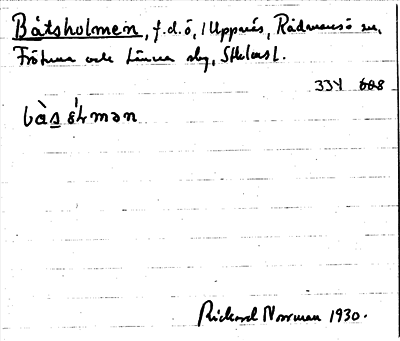 Båtsholmen, f.d. ö, i Uppnäs, Rådmansö sn,
Frötuna och Länna slg, Sthlms l.
334 608
bàsə̀ɫmən
Rickard Norrman 1930.